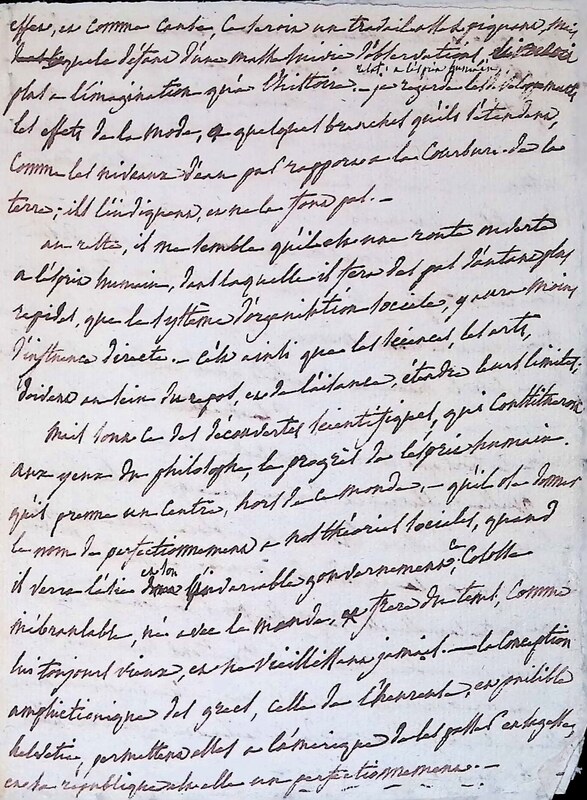 effets, et comme cause, ce serois un travail assez piquant, mais
que le défaut d'une masse suivie d'observations
relat. a l'esprit humain
plus a l'imagination qu'a l'histoire. — je regarde les dévelopements
les effets de la mode, a quelques branches qu'ils s'etendent,
comme les niveaux d'eau par rapport a la courbure de la
terre; ils l'indiquent, et ne la font pas. —
au reste, il me semble qu'il est une route ouverte
a l'esprit humain, dans laquelle il fera des pas d'autant plus
rapides, que le systême d'organisation sociale, y aura moins
d'influence directe. — c'est ainsi que les sciences, les arts,
doivent au sein du repos, et de l'aisance, étendre leurs limites.
Mais sont ce des découvertes scientifiques, qui constitueront
aux yeux du philosophe, le progrès de l'esprit humain.
qu'il prenne un centre, hors de ce monde, — qu'il ose donner
le nom de perfectionnement a nos théories sociales, quand
il verra l'asie et son invariable gouvernement; Colosse
inébranlable, né avec le monde, frere du tems, comme
lui toujours vieux, et ne vieillissant jamais. — la conception
amphictionique des grecs, celle de l'heureuse, et paisible
helvétie, permettent elles a l'amérique de les passer
et sa république est elle un perfectionnement. —